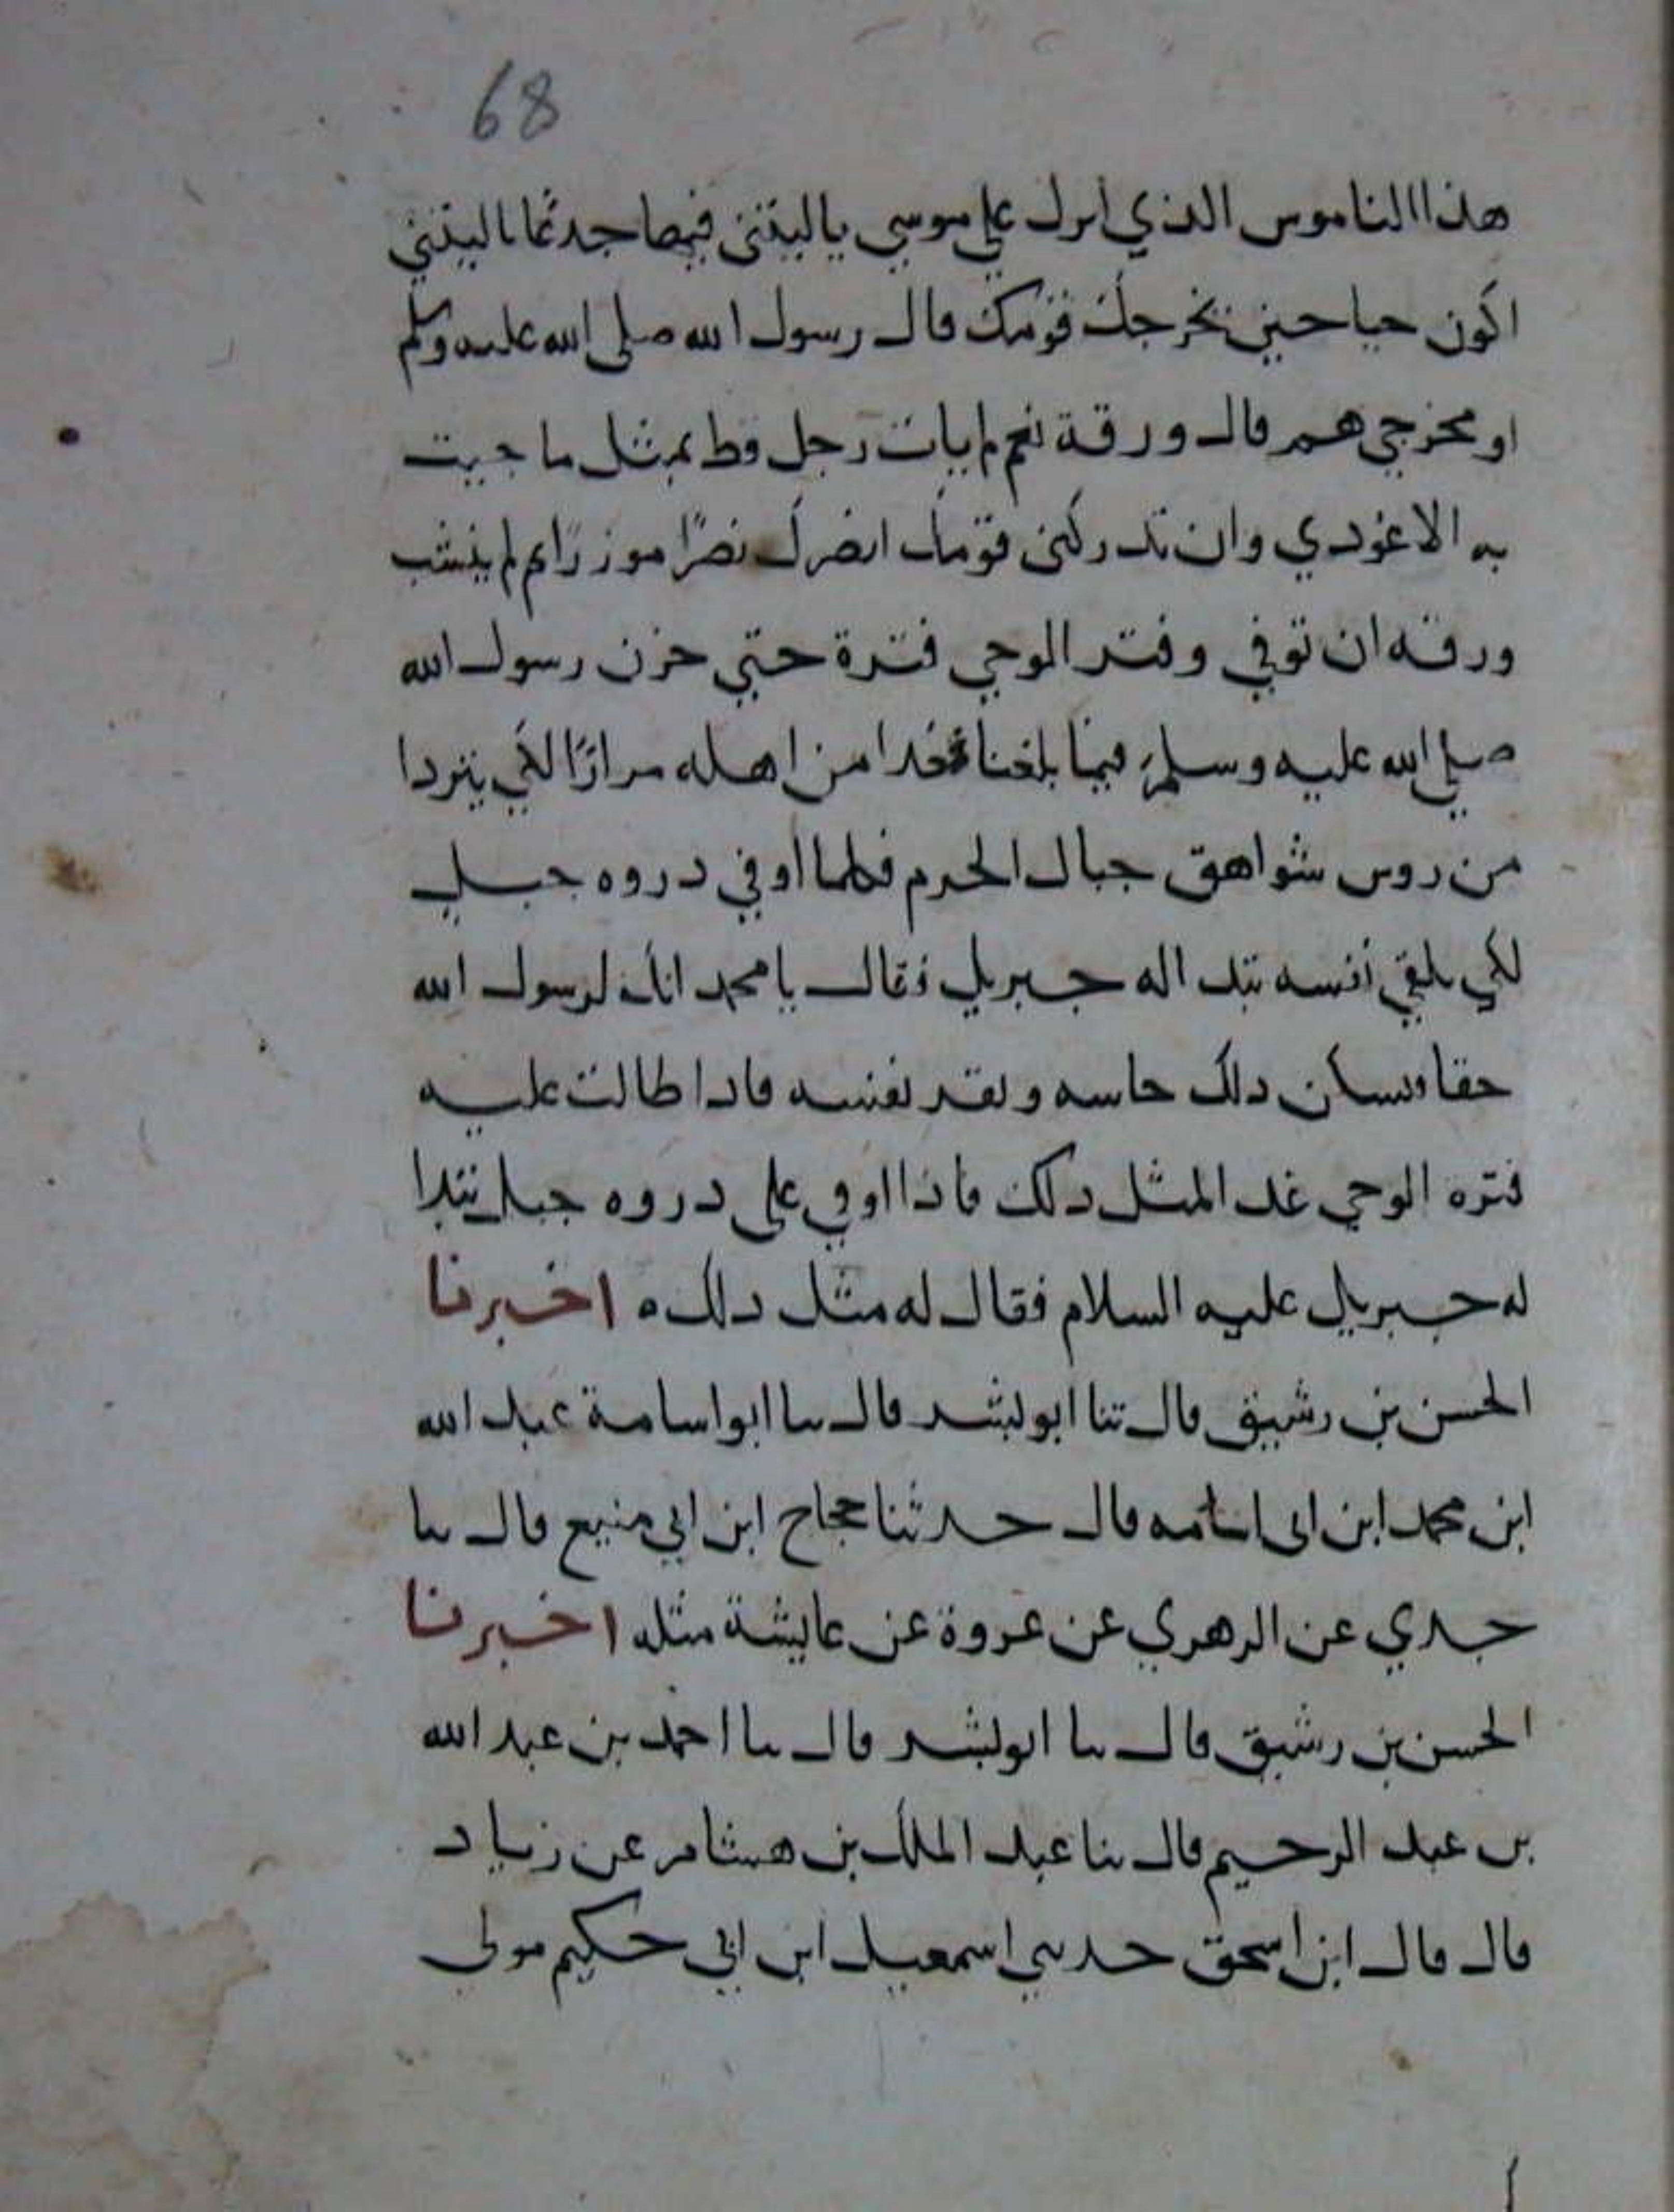 68
هذا الناموس الذي انزل علي موسي ياليتني فيها جدعا ياليتني
اكون حيا حين يخرجك قومك قال رسول الله صلى الله عليه وسلم
او مخرجي هم قال ورقة نعم لم يات رجل قط بمثل ما جيت
به الا عودي وان تدركني قومك انصرك نصرًا موزرًا ثم لم ينشب
ورقه ان توفي وفتر الوحي فترة حتي حزن رسول الله
صلي الله عليه وسلم فيما بلغنا فغدا من اهله مرارًا لكي يتردا
من روس شواهق جبال الحرم فكلما اوفي دروه جبل
لكي يلقي نفسه تبدا له جبريل فقال يا محمد انك لرسول الله
حقا فيسكن دلك جاشه وتقر نفسه فادا طالت عليه
فتره الوحي غدا لمثل دلك فاذا اوفي على دروه جبل تبدا
له جبريل عليه السلام فقال له مثل دلك ه اخبرنا
الحسن بن رشيق قال ثنا ابو بشر قال سا ابو اسامة عبد الله
ابن محمد ابن ابى اسامه قال حدثنا حجاح ابن ابي منيع قال سا
جدي عن الزهري عن عروة عن عايشة مثله اخبرنا
الحسن بن رشيق قال سا ابو بشر قال سا احمد بن عبد الله
بن عبد الرحيم قال سا عبد الملك بن هشام عن زياد
قال قال ابن اسحق حدثني اسمعيل ابن ابي حكيم مولى